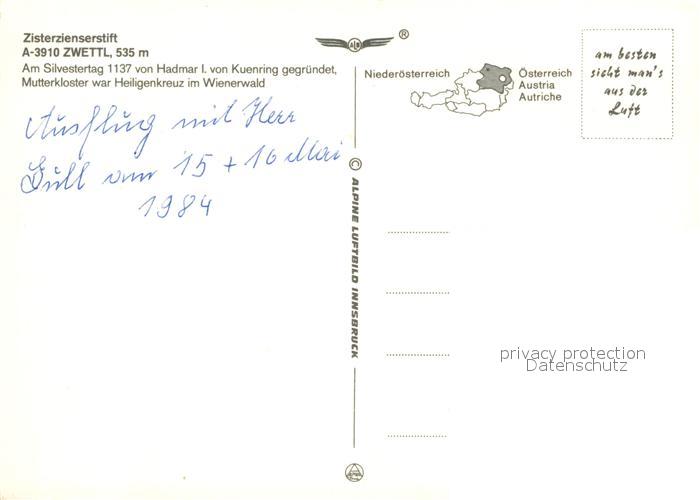 Zisterzienserstift
A-3910 ZWETTL, 535 m
Am Silvestertag 1137 von Hadmar I. von Kuenring gegründet,
Mutterkloster war Heiligenkreuz im Wienerwald
Ausflug mit Herr
Gull am 15 + 16 Mai
1984
ALB
®
Niederösterreich
Österreich
Austria
Autriche
am besten
sieht man's
aus der
Luft
© ALPINE LUFTBILD INNSBRUCK
privacy protection
Datenschutz